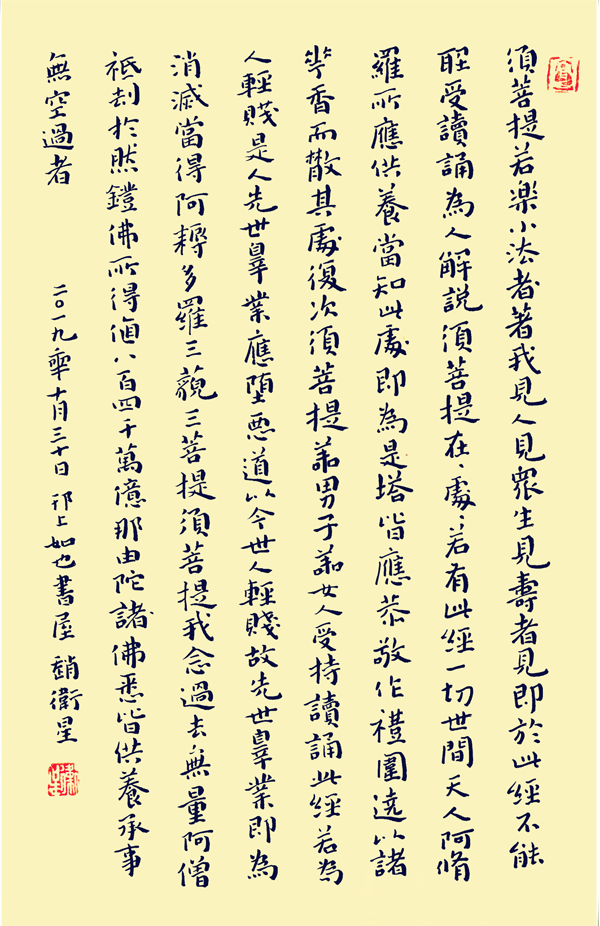 須菩提若楽小法者著我見人見眾生見壽者見即於此經不能
聽受讀誦為人解說須菩提在〻處〻若有此經一切世間天人阿脩
羅所應供養當知此處即為是塔皆應恭敬作禮圍遶以諸
華香而散其處復次須菩提善男子善女人受持讀誦此經若為
人輕賤是人先世辠業應墮悪道以今世人輕賤故先世辠業即為
消滅當得阿耨多羅三藐三菩提須菩提我念過去無量阿僧
祇刧於然鐙佛所得值八百四千萬億那由陀諸佛悉皆供養承事
無空過者
二〇一九年十月三十日 邗上如也書屋 趙衛星